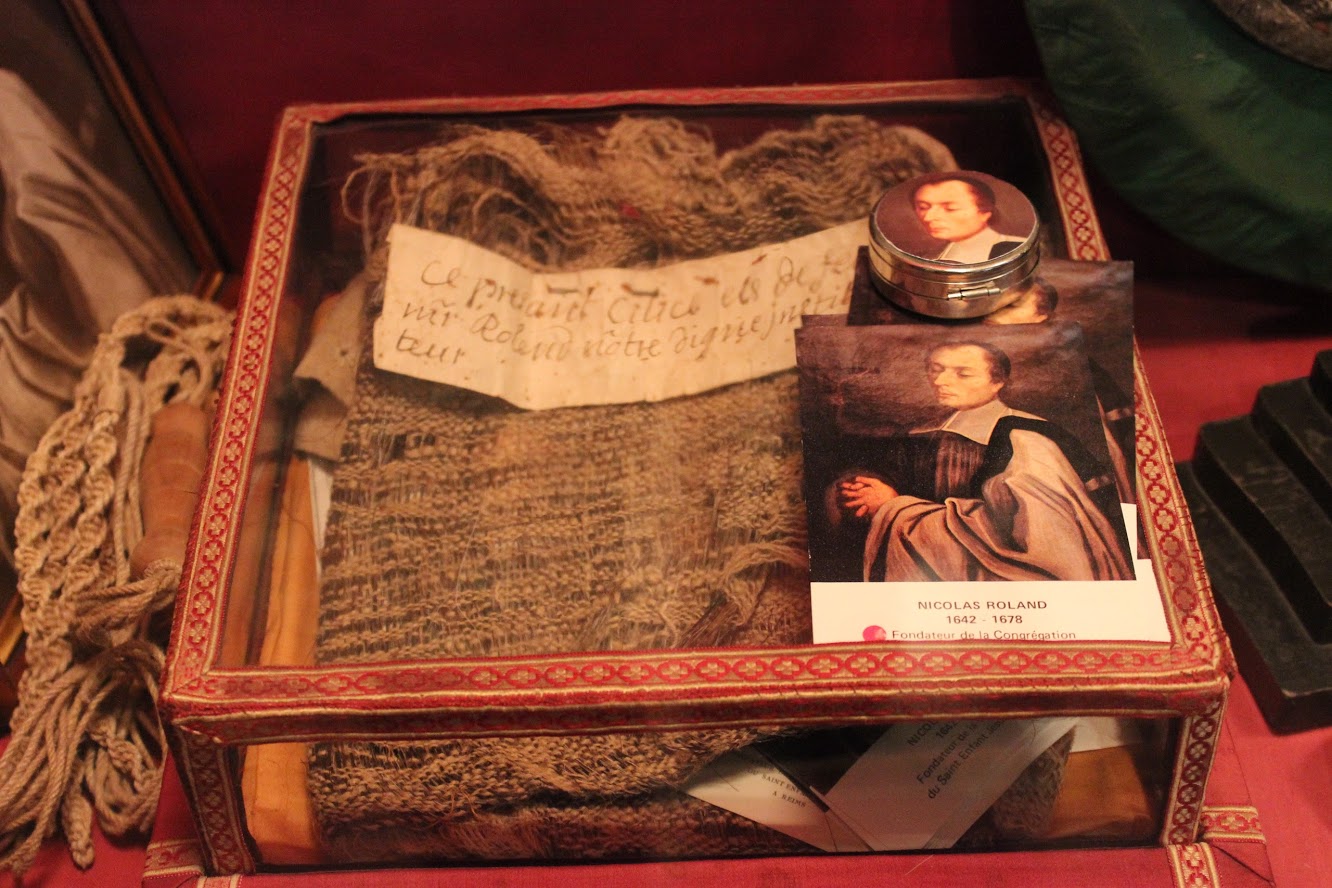 Ce present Cilice est de feu
mr Roland nôtre digne Institu
teur
NICOLAS ROLAND
1642 - 1678
Fondateur de la Congrégation
NICO
164
Fondateur de la
du Saint Enfant Jés
SAINT ENF
A REIMS